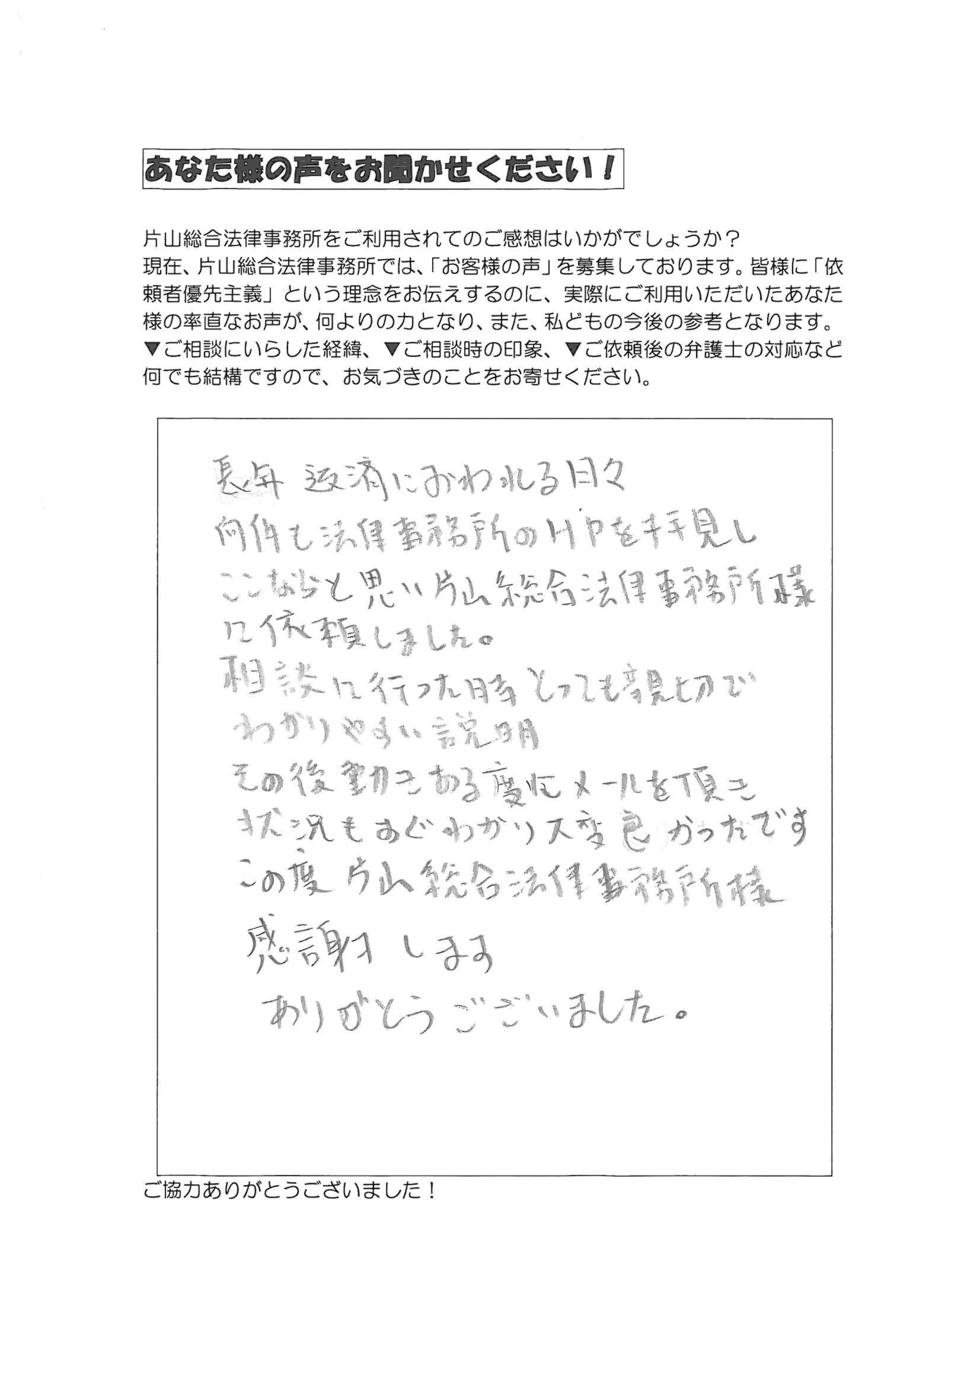 あなた様の声をお聞かせください！
片山総合法律事務所をご利用されてのご感想はいかがでしょうか？
現在、片山総合法律事務所では、「お客様の声」を募集しております。皆様に「依
頼者優先主義」という理念をお伝えするのに、実際にご利用いただいたあなた
様の率直なお声が、何よりの力となり、また、私どもの今後の参考となります。
▼ご相談にいらした経緯、▼ご相談時の印象、▼ご依頼後の弁護士の対応など
何でも結構ですので、お気づきのことをお寄せください。
長年 返済におわれる日々
何件も法律事務所のHPを拝見し
ここならと思い片山総合法律事務所様
に依頼しました。
相談に行った時とっても親切で
わかりやすい説明
その後動きある度にメールを頂き
状況もすぐわかり大変良かったです
この度片山総合法律事務所様
感謝します
ありがとうございました。
ご協力ありがとうございました！